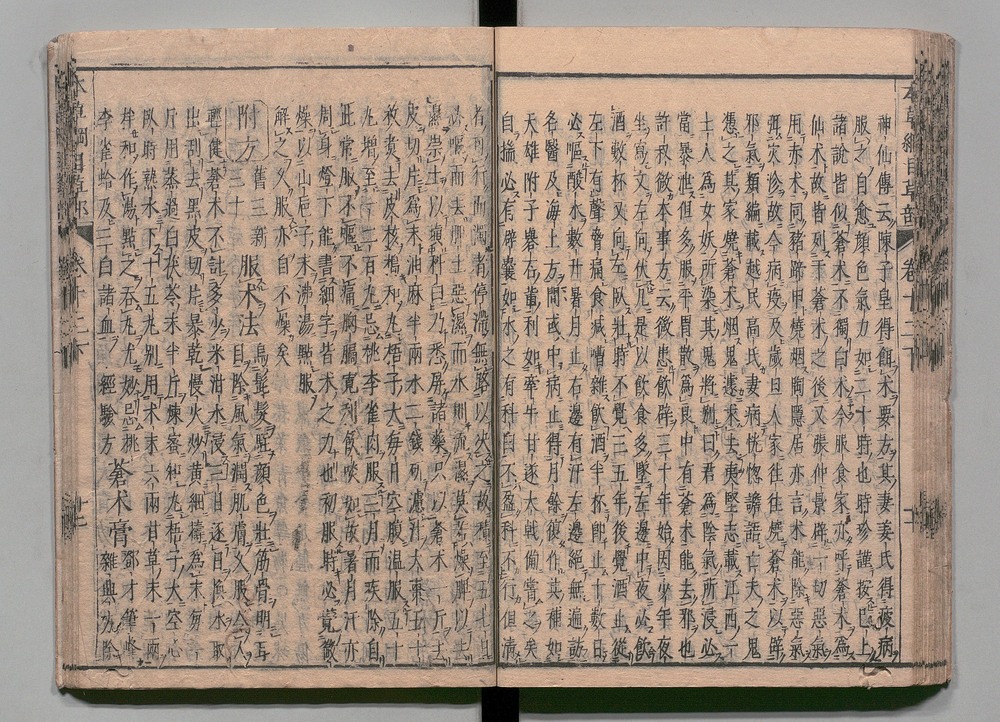 神仙傳云陳子皇得餌术要方其妻姜氏得疲病
服之自愈顏色氣力如二十時也時珍謹按已上
諸說皆似蒼术不獨白术今服食家亦呼蒼术爲
仙术故皆列于蒼术之後又張仲景辟一切惡氣
用赤术同豬蹄甲燒烟陶隱居亦言术能除惡氣
弭災沴故今病疫及歲旦人家往往燒蒼术以辟
邪氣類編載越民高氏妻病恍惚譫語亡夫之鬼
憑之其家燒蒼术烟鬼遽求去夷堅志載江西一
士人爲女妖所染其鬼將别曰君爲陰氣所浸必
當暴泄但多服平胃散爲良中有蒼术能去邪也
許叔微本事方云微患飲癖三十年始因少年夜
坐寫文左向伏几是以飲食多墜左邊中夜必飲
酒數杯又向左臥壯時不覺三五年後覺酒止從
左下有聲脅痛食減嘈雜飲酒半杯即止十數日
必嘔酸水數升暑月止右邊有汗左邊絕無遍訪
名醫及海上方間或中病止得月餘復作其補如
天雄附子礬石輩利如牽牛甘遂大戟備嘗之矣
自揣必有癖囊如水之有科臼不盈科不行但清
者可行而濁者停滯無路以决之故積至五七日
必嘔而去脾土惡濕而水則流濕莫若燥脾以去
濕崇土以填科臼乃悉屏諸藥只以蒼术一斤去
皮切片爲末油麻半兩水二錢研濾汁大棗五十
枚煮去皮核搗和丸梧子大每日空腹温服五十
丸增至一二百丸忌桃李雀肉服三月而疾除自
此常服不嘔不痛胸膈寬利飲啖如故暑月汗亦
周身燈下能書細字皆术之力也初服時必覺微
燥以山巵子末沸湯㸃服
解之久服亦自不燥矣
附方 舊三新三十 服术法 烏髭髮駐顏色壯筋骨明耳
目除風氣潤肌膚久服令人
輕健蒼术不計多少米泔水浸三日逐日換水取
出刮去黑皮切片暴乾慢火炒黃細擣爲末每一
斤用蒸過白茯苓末半斤煉蜜和丸梧子大空心
臥時熱水下十五丸别用术末六兩甘草末一兩
拌和作湯㸃之吞丸尤妙忌桃
李雀蛤及三白諸血 經驗方 蒼术膏 鄧才筆峰
雜興方除
本草綱目草部 卷十二下